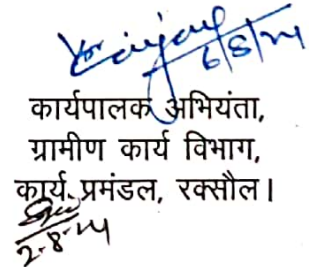 6/8/24
कार्यपालक अभियंता,
ग्रामीण कार्य विभाग,
कार्य प्रमंडल, रक्सौल।
2-8-24